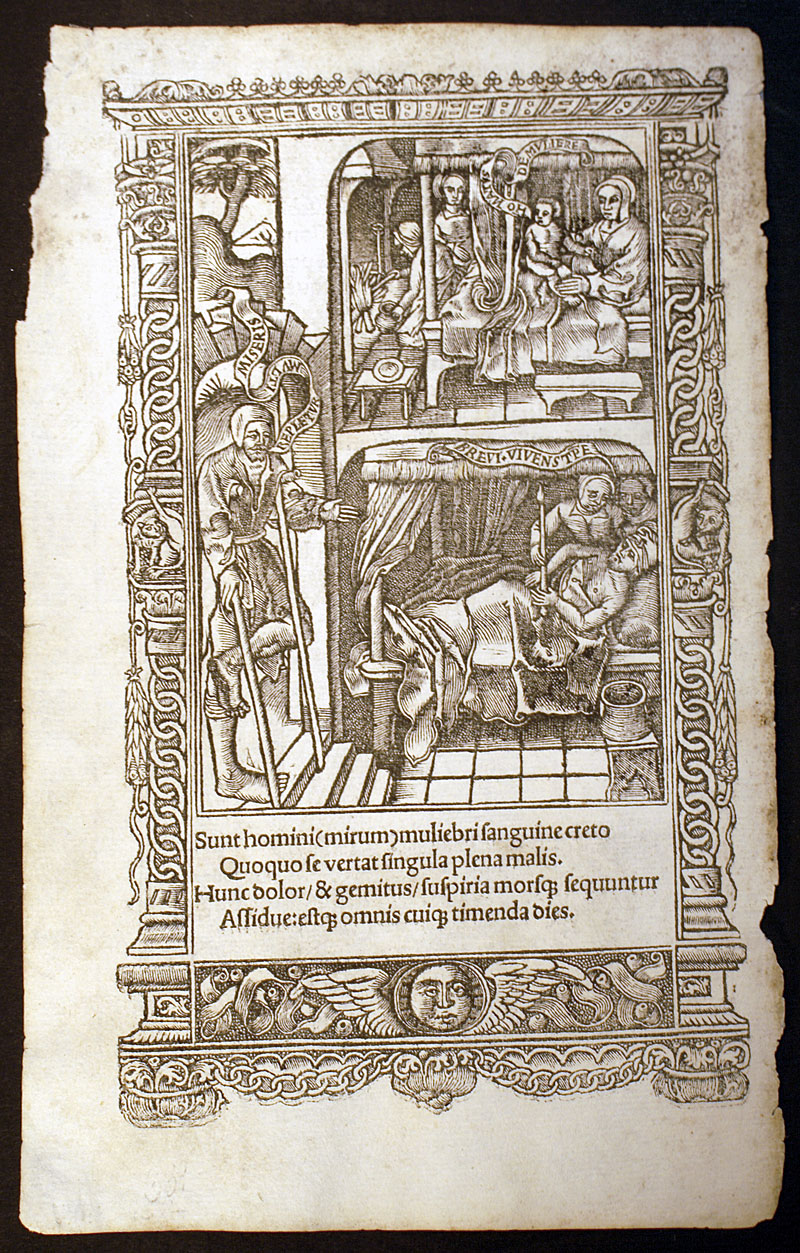 HO NATVS
DE MVLIERE
REPLETVR
BREVI·VIVENS TPE
Sunt homini(mirum)muliebri ſanguine creto
Quoquo ſe vertat ſingula plena malis.
Hunc dolor/& gemitus/ſuſpiria morſqꝫ ſequuntur
Aſſidue:eſtqꝫ omnis cuiqꝫ timenda dies.